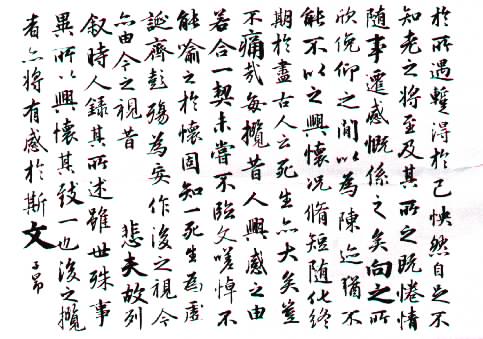 於所遇蹔得於己怏然自足不
知老之将至及其所之既惓情
随事遷感慨係之矣向之所
欣俛仰之間以為陳迹猶不
能不以之興懷况脩短随化終
期於盡古人云死生亦大矣豈
不痛哉每攬昔人興感之由
若合一契未嘗不臨文嗟悼不
能喻之於懷固知一死生為虛
誕齊彭殤為妄作後之視今
亦由今之視昔 悲夫故列
叙時人録其所述雖世殊事
異所以興懷其致一也後之攬
者亦将有感於斯文 子昂